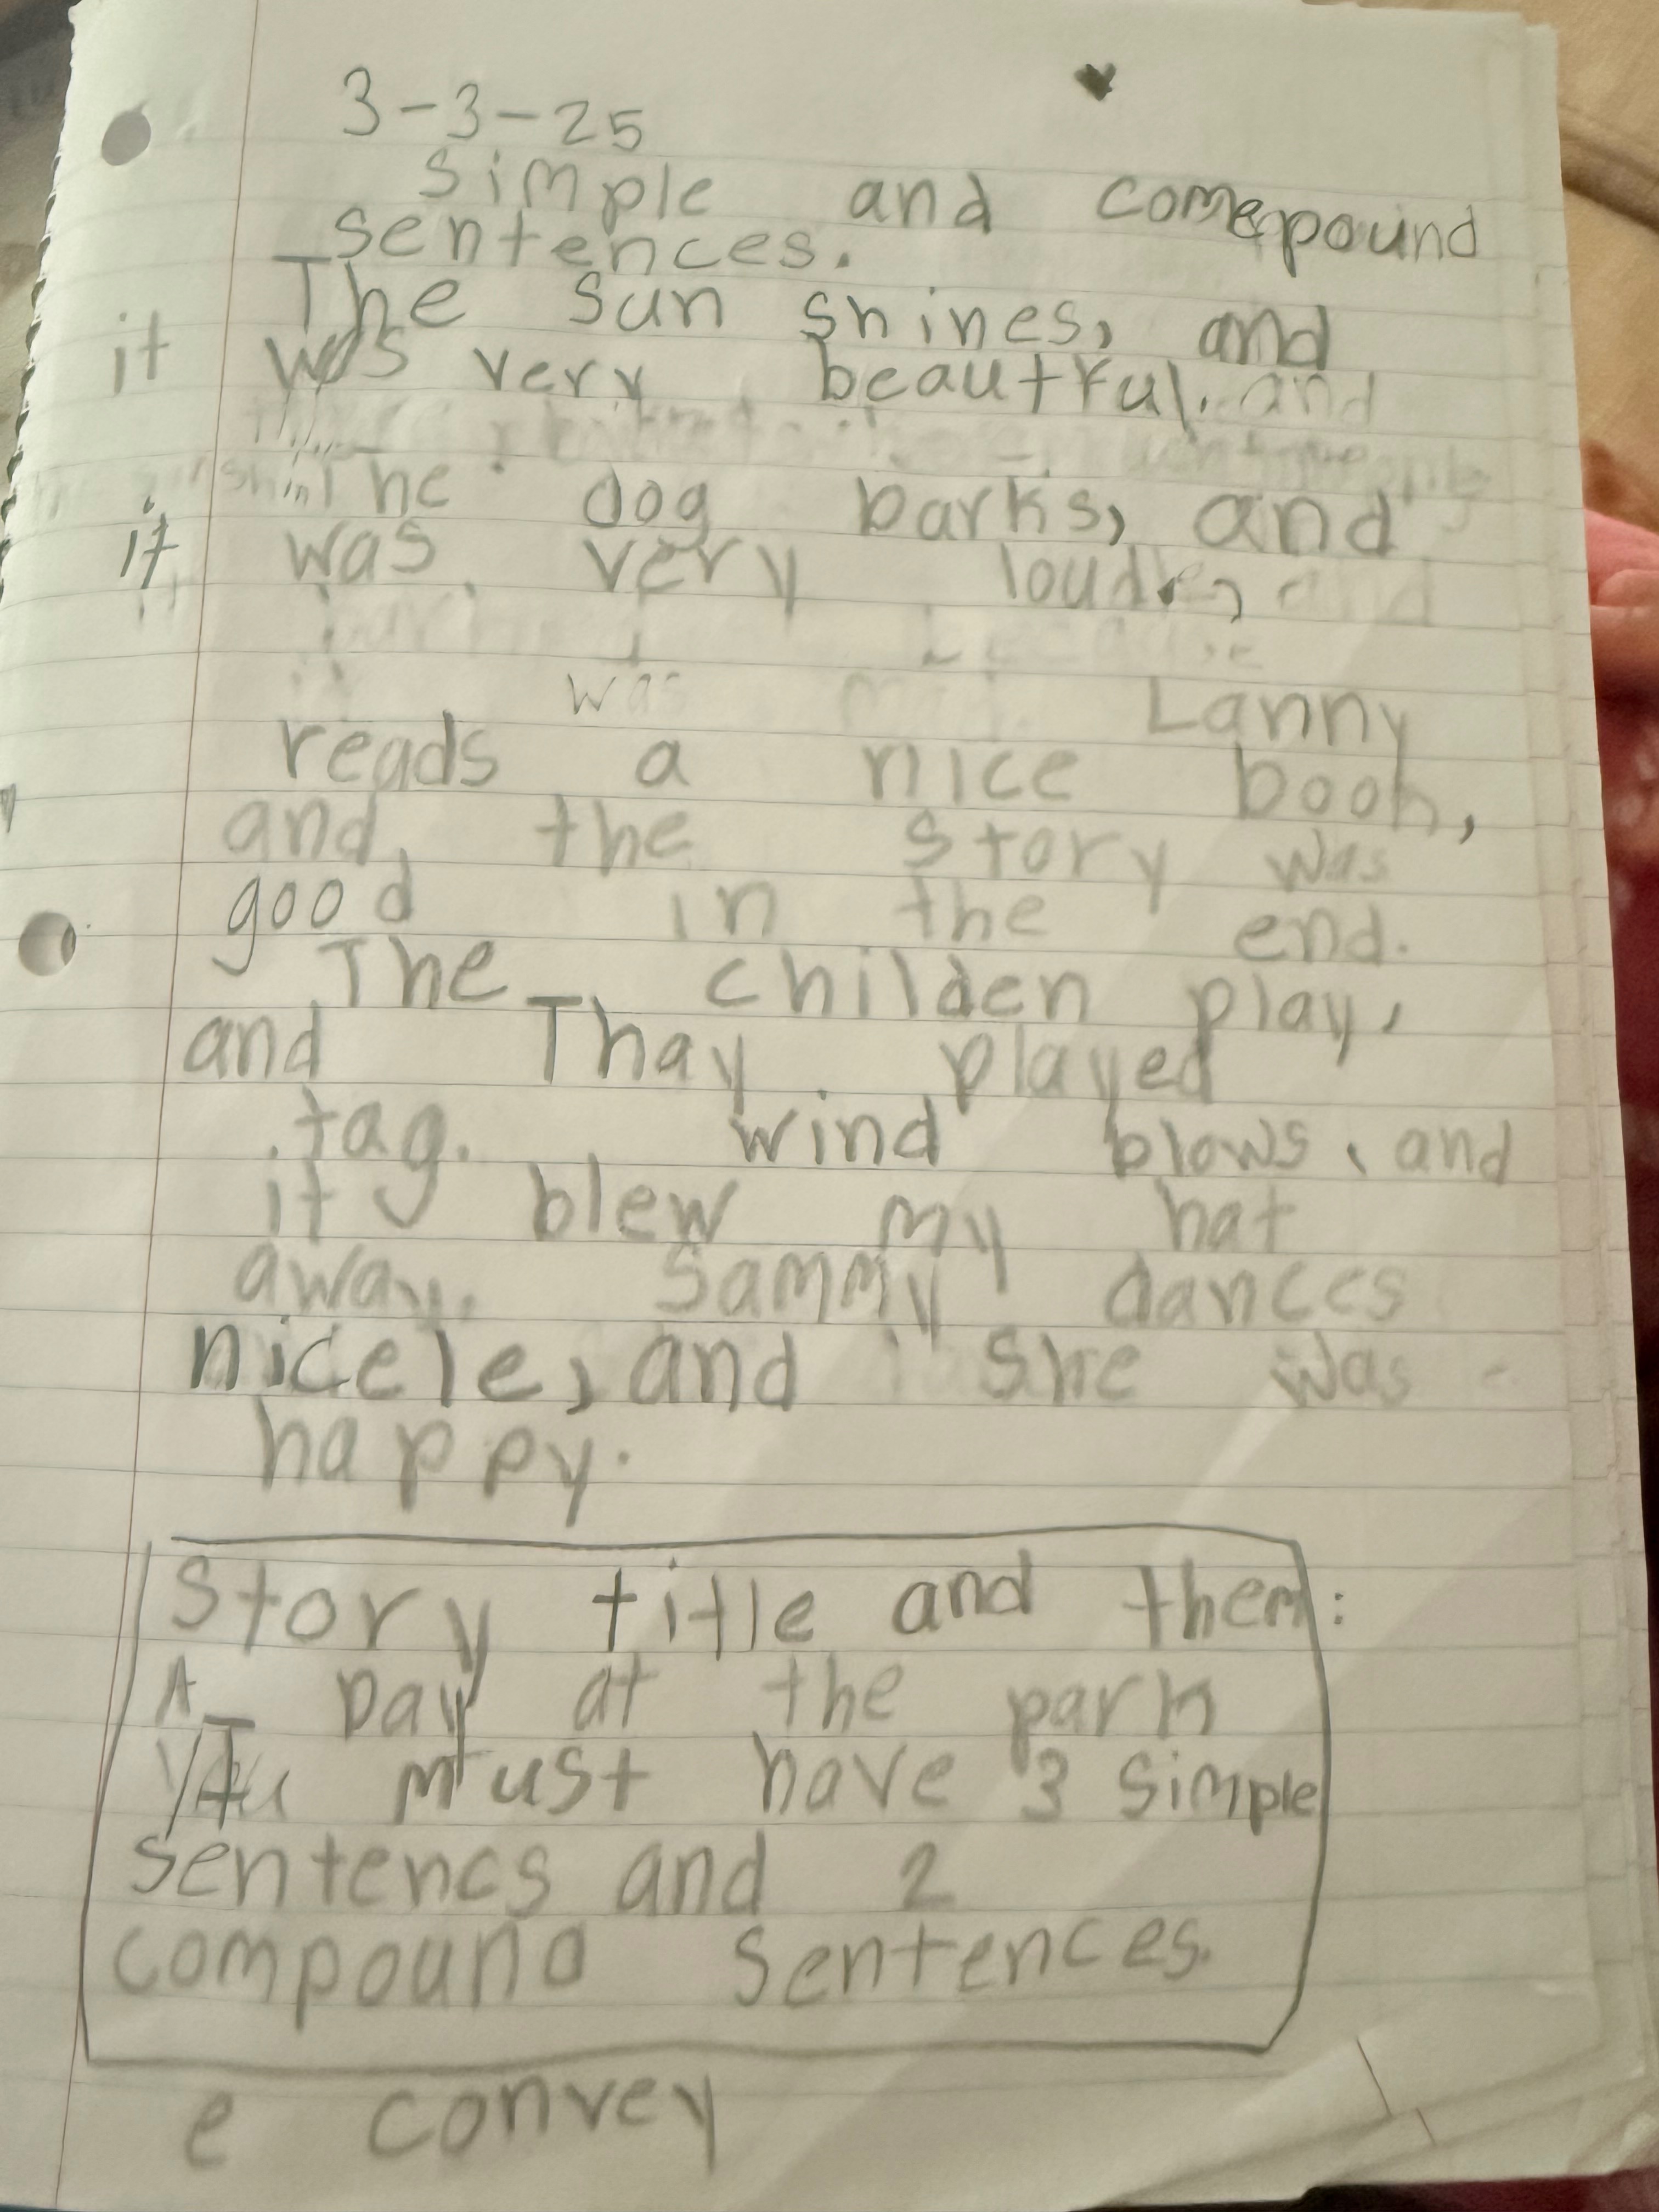 3-3-25
simple and comepound
sentences.
The sun shines, and
it was very beautiful. and
The dog barks, and
it was very loud, and
was Lanny
reads a nice book,
and the story was
good in the end.
The childen play,
and Thay played
tag. wind blows, and
it blew my hat
away. Sammy dances
nicele, and she was
happy.
Story title and them:
A Day at the park
must have 3 simple
sentencs and 2
compound sentences.
e convey